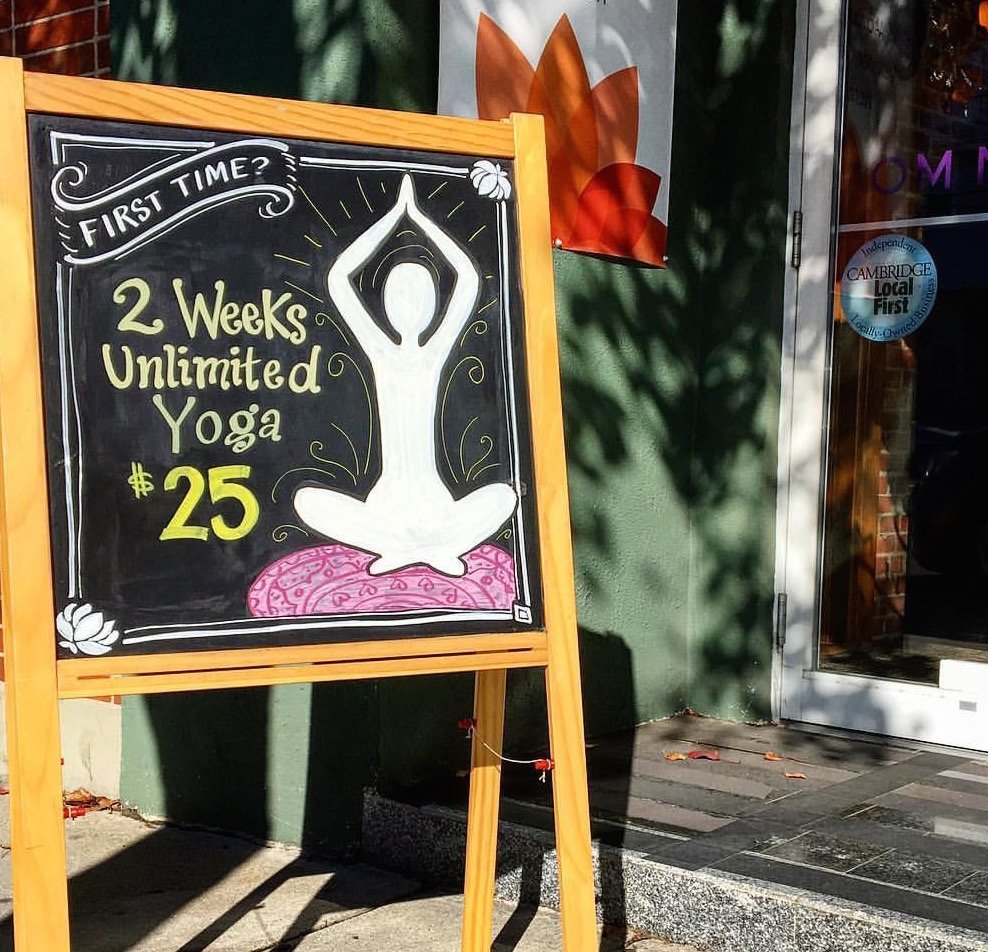 FIRST TIME?
2 Weeks
Unlimited
Yoga
$25
OM
Independent
CAMBRIDGE
Local
First
Locally-Owned Business